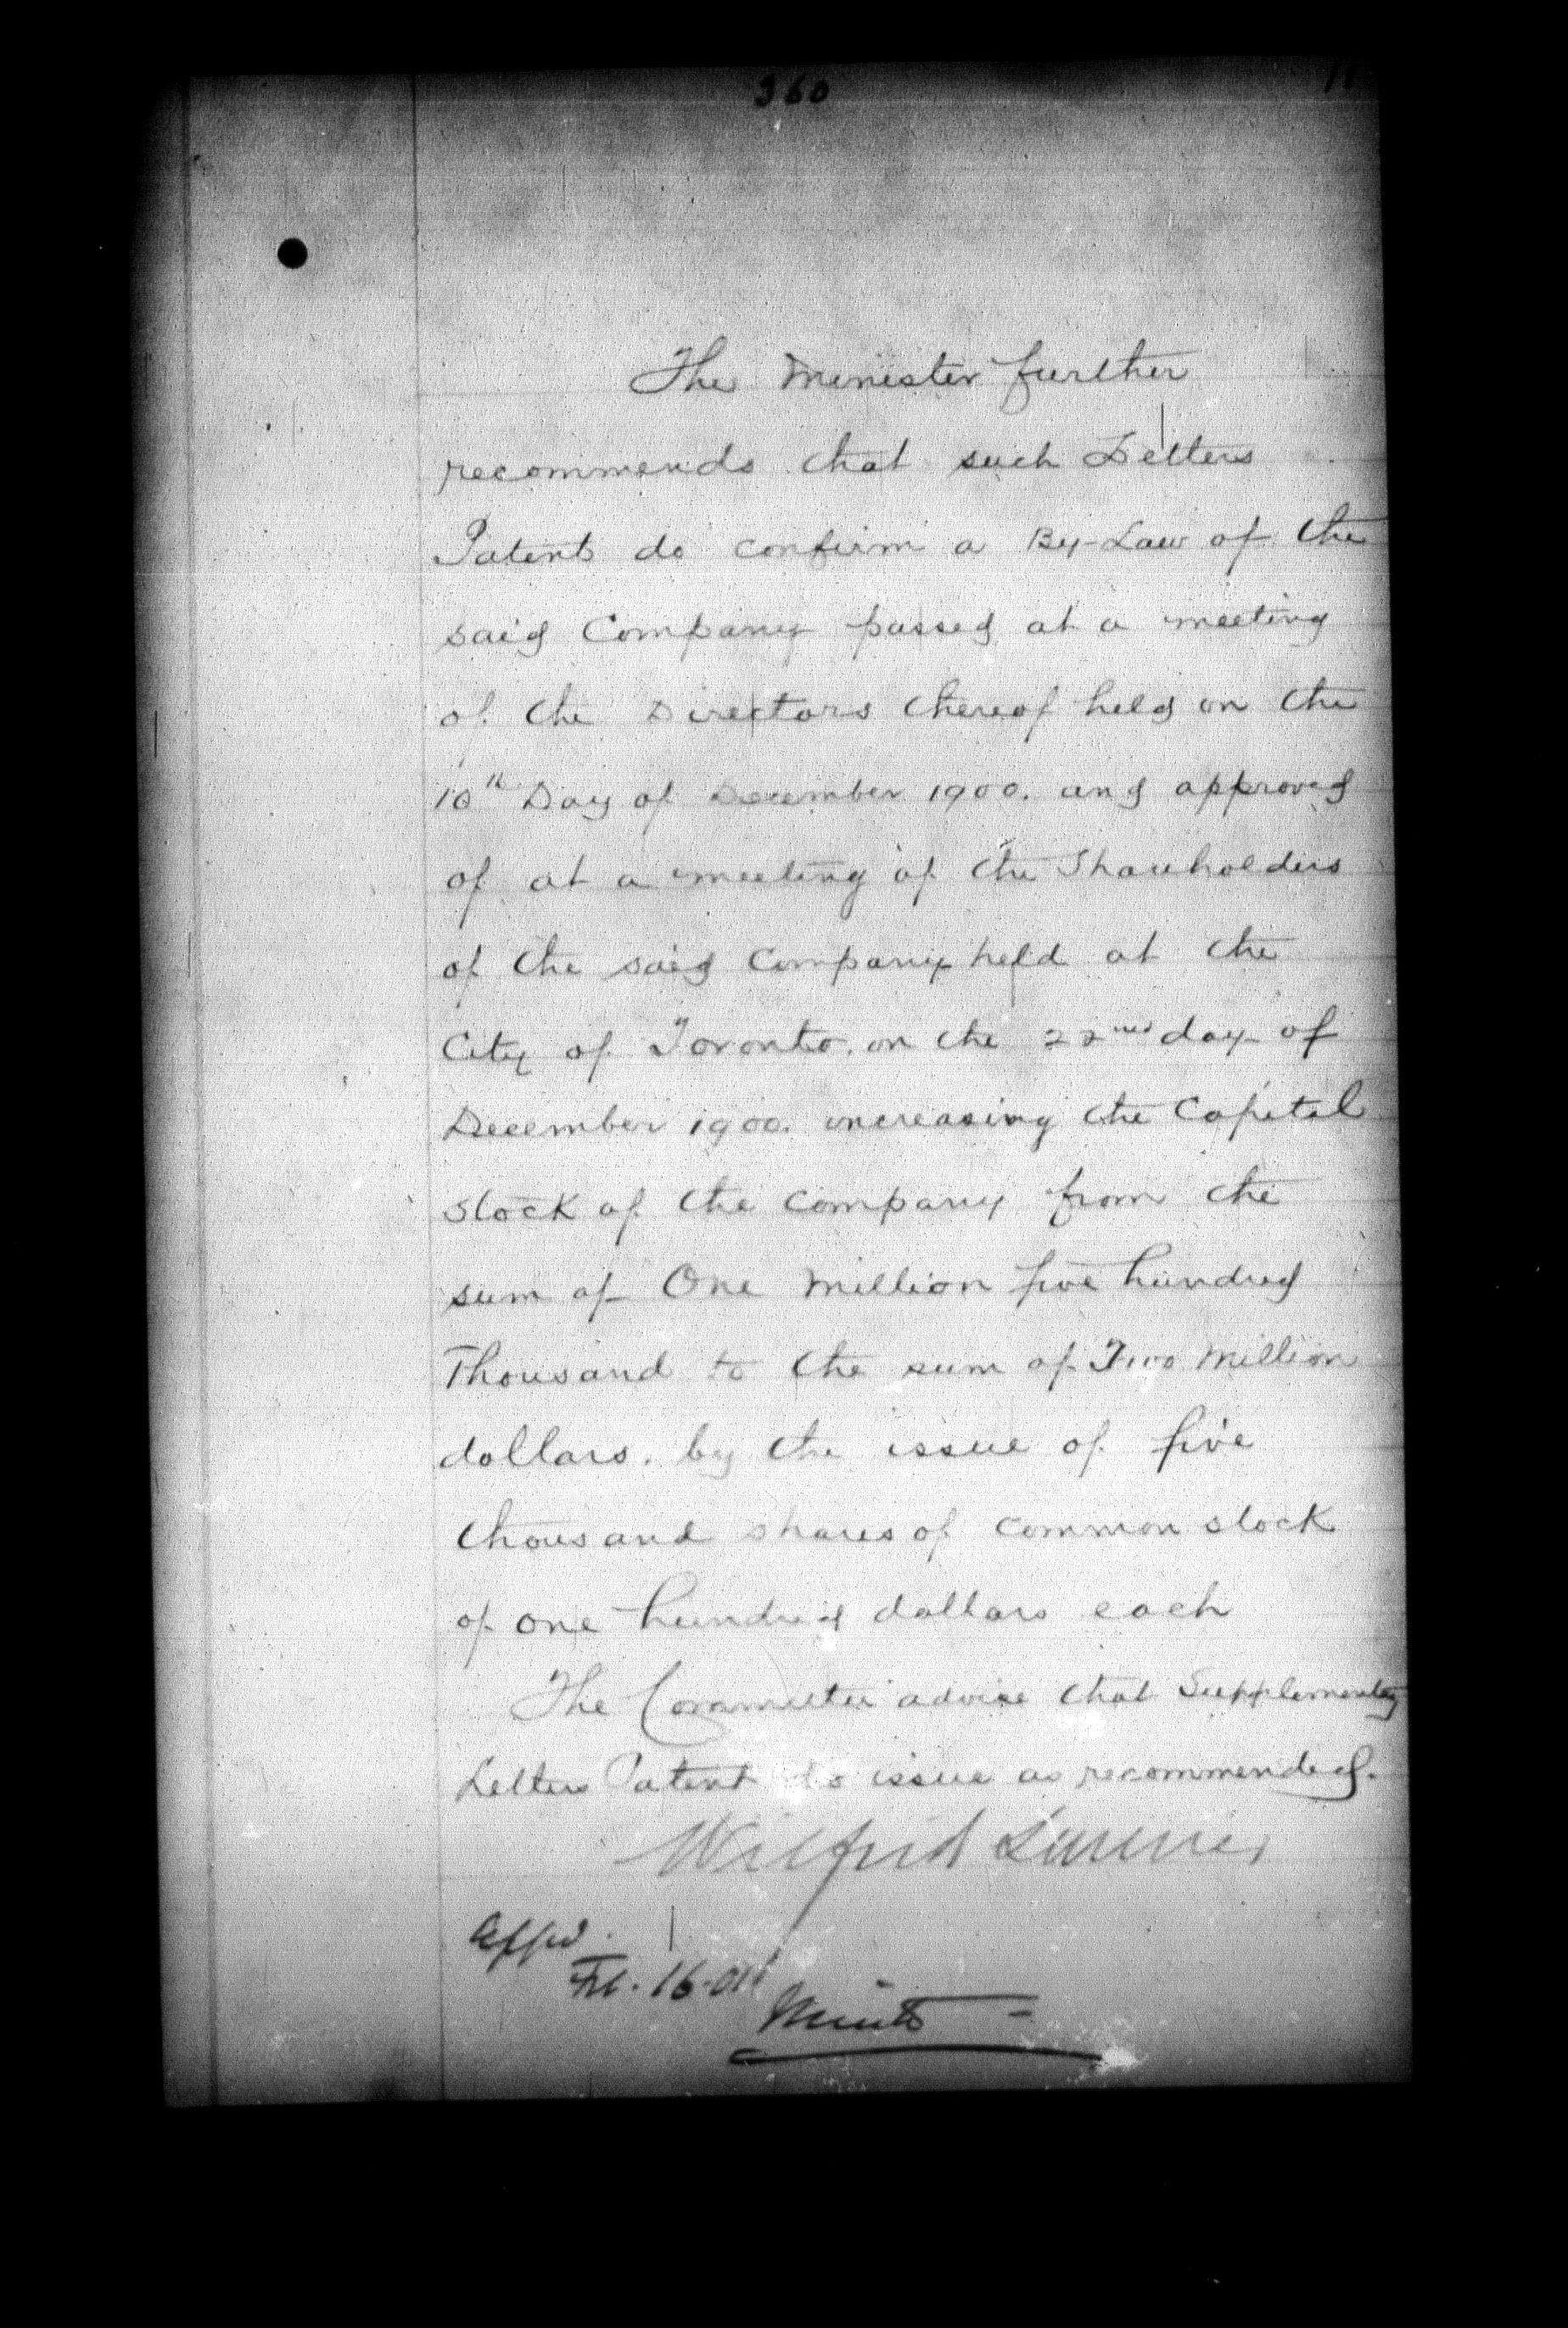 360
The Minister further
recommends that such Letters
Patent do confirm a By-Law of the
said Company passed at a meeting
of the Directors thereof held on the
10th Day of December 1900. and approved
of at a meeting of the Shareholders
of the said Company held at the
City of Toronto. on the 22nd day of
December 1900. increasing the Capital
stock of the Company from the
sum of One Million five hundred
Thousand to the sum of Two Million
dollars. by the issue of five
thousand shares of common stock
of one hundred dollars each
The Committee advise that Supplementary
Letters Patent do issue as recommended.
Wilfrid Laurier
Appd.
Feb. 16. 01
Minto